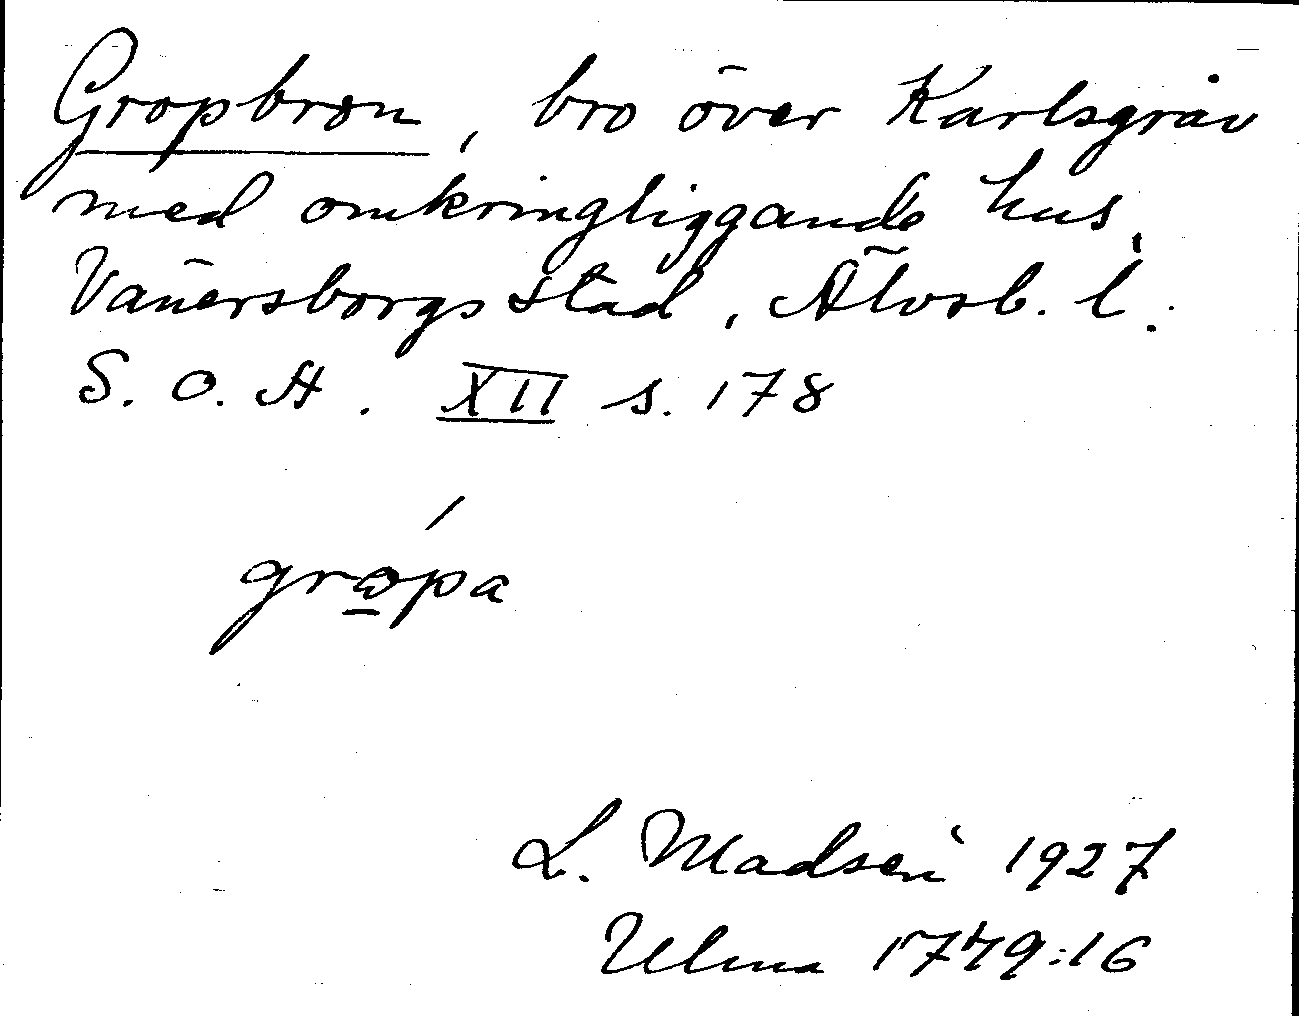 Gropbron, bro över Karlsgrav
med omkringliggande hus,
Vänersborgs stad, Älvsb. l.
S. O. A. XII s. 178
grópa
L. Madsén 1927
Ulma 1779:16